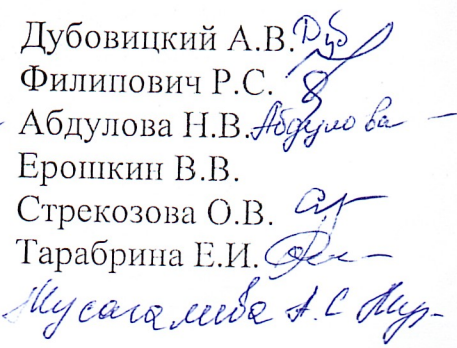 Дубовицкий А.В. Дуб
Филипович Р.С.
Абдулова Н.В. Абдулова
Ерошкин В.В.
Стрекозова О.В.
Тарабрина Е.И.
Жусагалиева А.С Жус